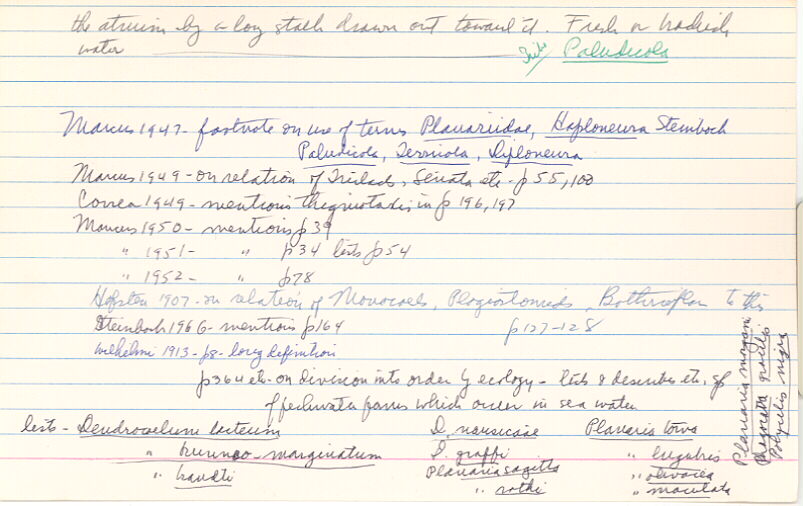 the atrium by a long stalk drawn out toward it. Fresh or brackish
water
Paludicola
Marcus 1947 - footnote on use of terms Planariidae, Haploneura Steinboch
Paludicola, Terricola, Diploneura
Marcus 1949 - on relation of Triclads, Seriata etc - p 55, 100
Correa 1949 - mentions thigmotaxis in p 196, 197
Marcus 1950 - mentions p 39
" 1951 - " p 34 lists p 54
" 1952 - " p 78
Hofsten 1907 - on relation of Monocoels, Plagiostomids, Bothrioplan to this
Steinboch 1966 - mentions p 164 p 127-128
Wilhelmi 1913 - p8 - long definition
p 364 etc - on division into order by ecology - lists & describes etc. spp
of freshwater forms which occur in sea water
lists - Dendrocoelum lacteum D. nausicaae Planaria torva
" brunneo-marginatum P. graffi " lugubris
" Planaria sagitta " olivacea
" rothi " maculata
Planaria morgani
Phagocata gracilis
Polycelis nigra